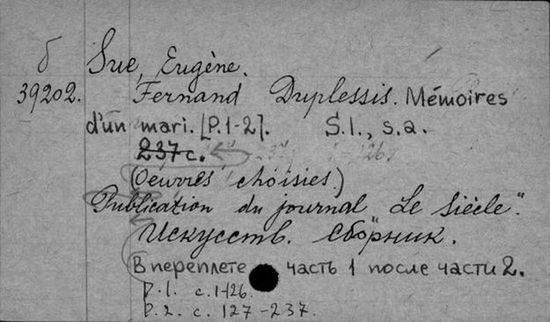 б Sue, Eugène.
39202. Fernand Duplessis. Mémoires
d'un mari. [P.1-2]. S.l., s.a.
237 с.
(Oeuvres choisies.)
Publication du journal "Le Siècle".
Искусств. сборник.
В переплете часть 1 после части 2.
p.1. с.1-126.
p.2. с. 127-237.